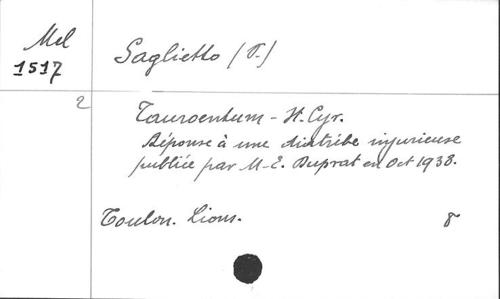 Mel
1517
Saglietto (V.)
2
Tauroentum - St. Cyr.
Réponse à une diatribe injurieuse
publiée par M-E. Duprat en Oct 1938.
Toulon. Lions.
8